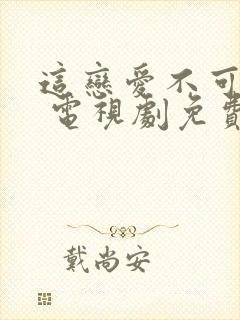 這戀愛不可
電視劇免費
戴尚安